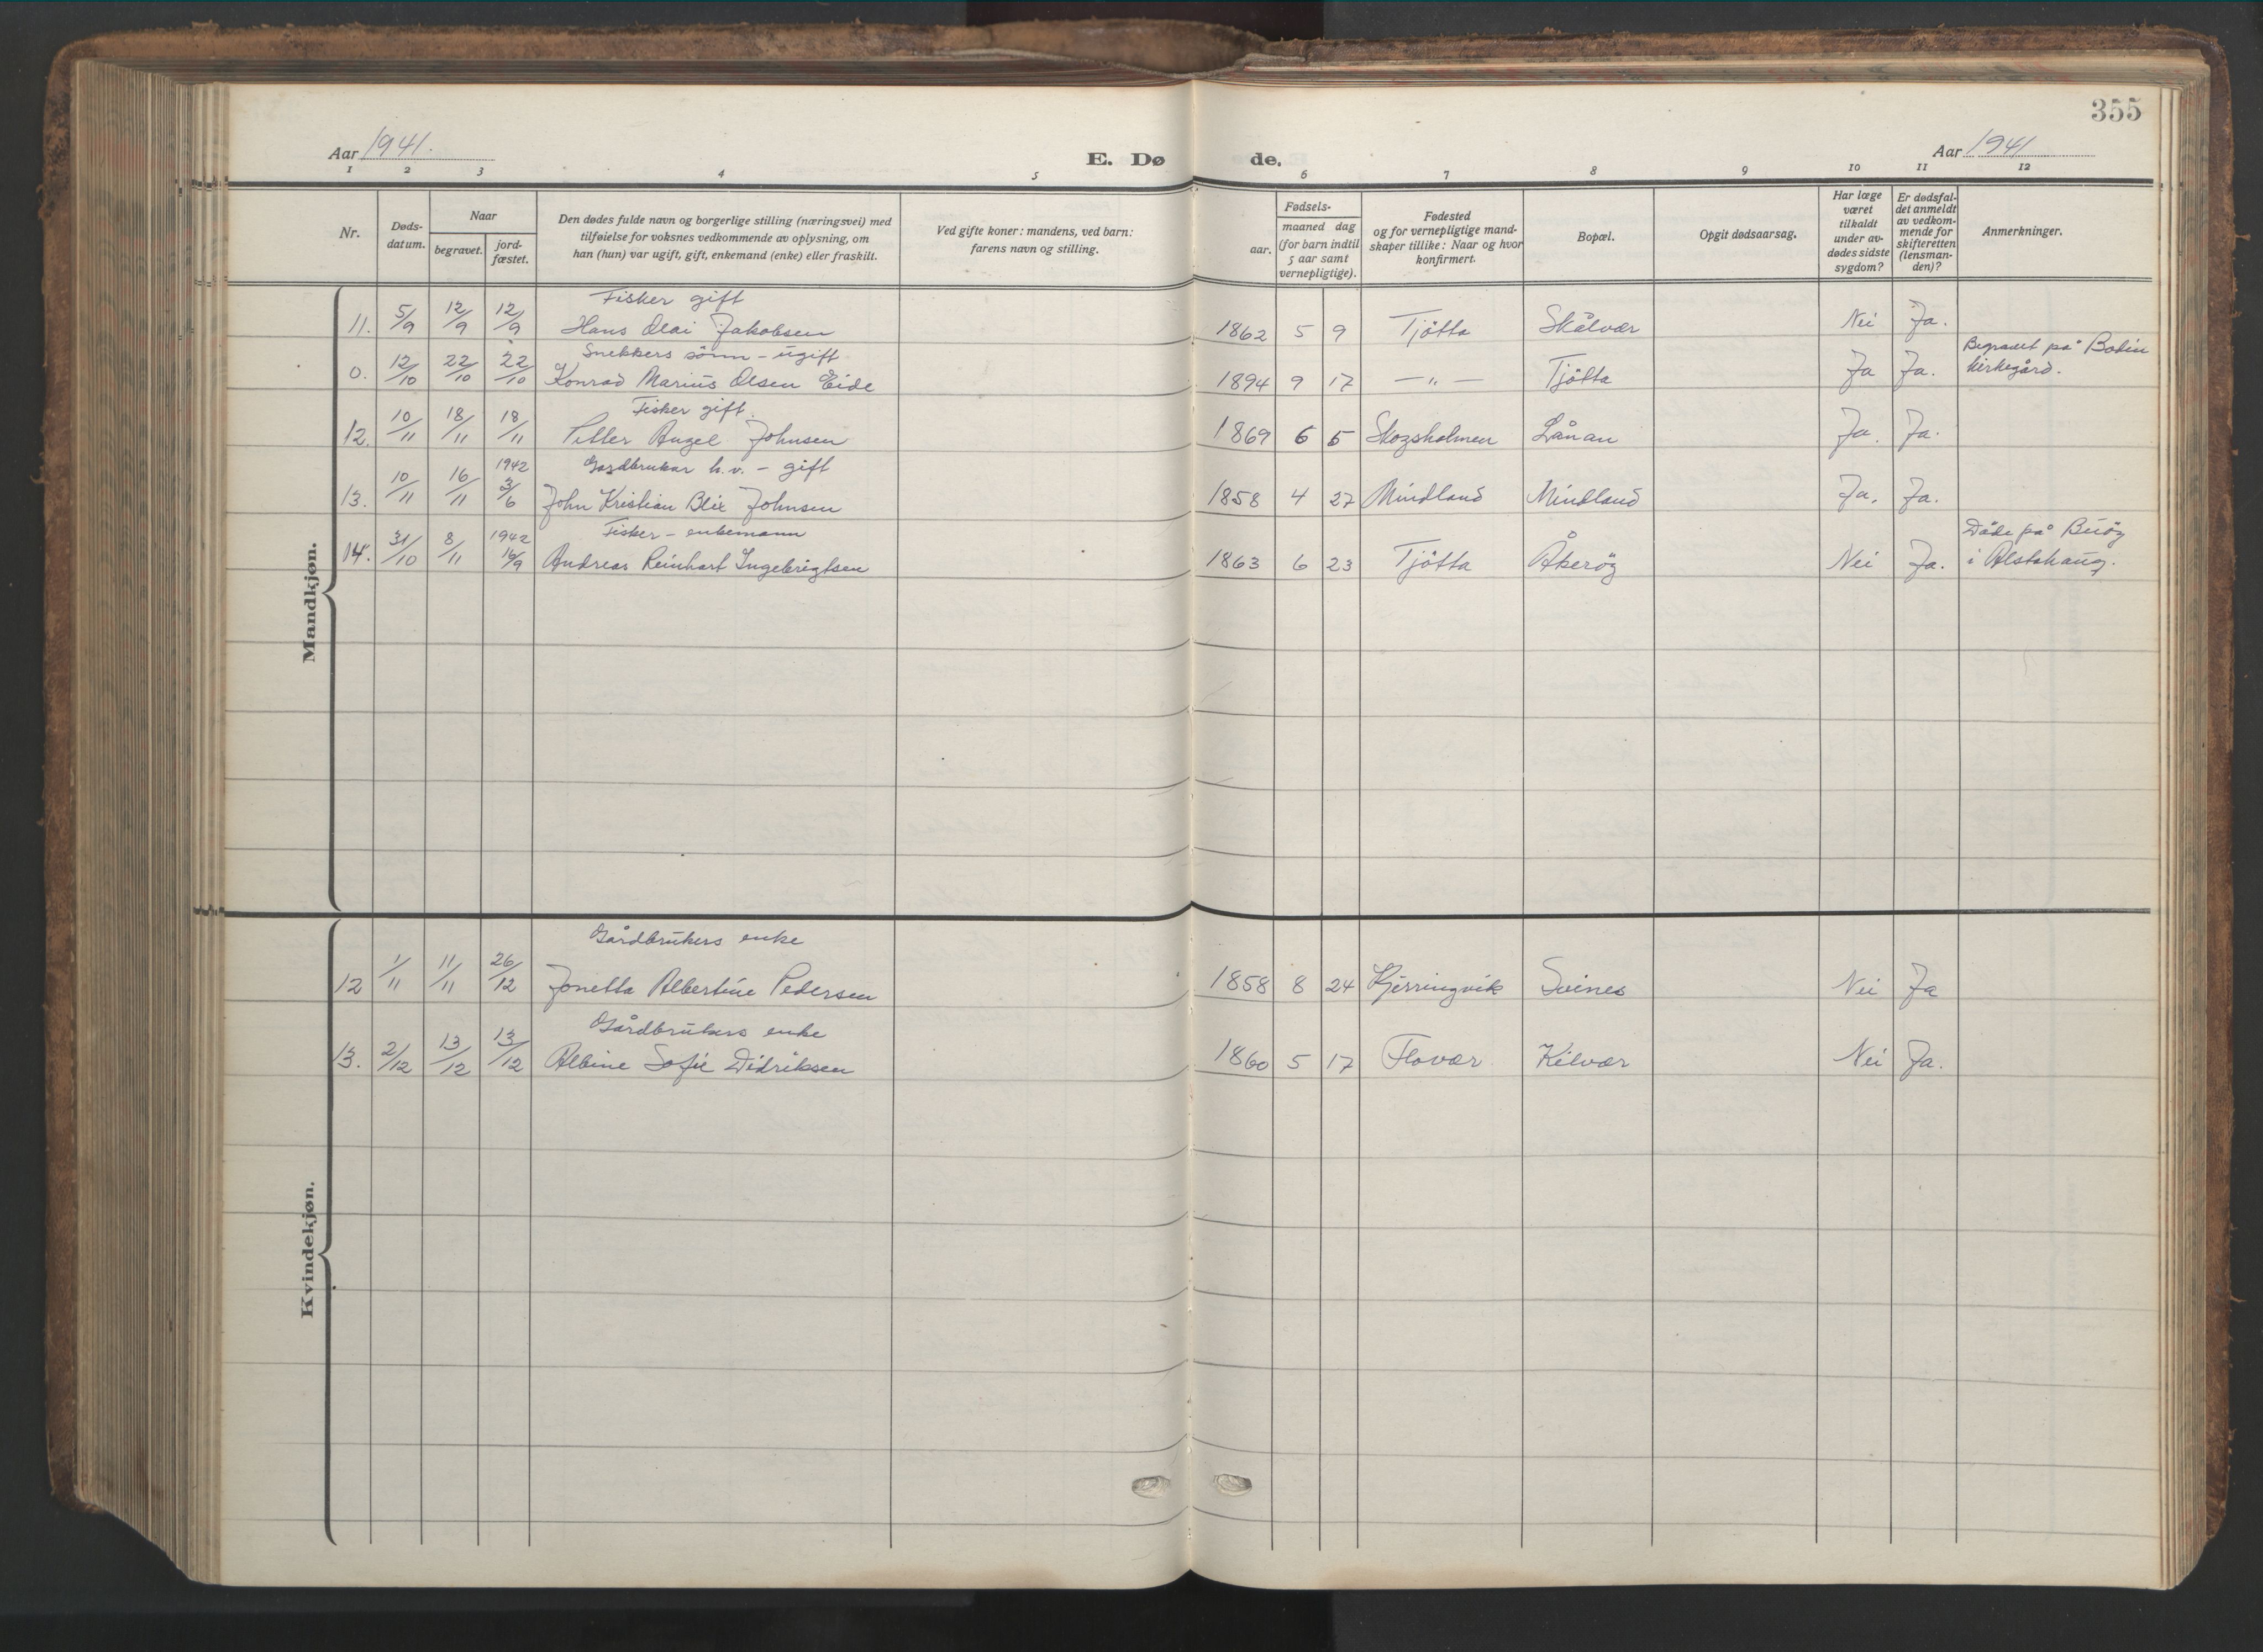 355
Aar 1941.
E. Dø de.
Aar 1941
1 2 3 4 5 6 7 8 9 10 11 12
Nr.
Døds-
datum.
Naar
begravet.
jord-
fæstet.
Den dødes fulde navn og borgerlige stilling (næringsvei) med
tilføielse for voksnes vedkommende av oplysning, om
han (hun) var ugift, gift, enkemand (enke) eller fraskilt.
Ved gifte koner: mandens, ved barn:
farens navn og stilling.
Fødsels-
aar.
maaned dag
(for barn indtil
5 aar samt
vernepligtige).
Fødested
og for vernepligtige mand-
skaper tillike: Naar og hvor
konfirmert.
Bopæl.
Opgit dødsaarsag.
Har læge
været
tilkaldt
under av-
dødes sidste
sygdom?
Er dødsfal-
det anmeldt
av vedkom-
mende for
skifteretten
(lensman-
den)?
Anmerkninger.
Mandkjøn.
Fisker gift
11. 5/9 12/9 12/9 Hans Olai Jakobsen 1862 5 9 Tjötta Skålvær Nei Ja.
Snekkers sönn - ugift Begravet på Bodin
0. 12/10 22/10 22/10 Konrad Marius Olsen Eide 1894 9 17 —„— Tjötta Ja Ja. kirkegård.
Fisker gift.
12. 10/11 18/11 18/11 Petter Angel Johnsen 1869 6 5 Skogsholmen Lånan Ja. Ja.
1942 Gardbruker h.v. - gift
13. 10/11 16/11 3/6 John Kristian Blix Johnsen 1858 4 27 Mindland Mindland Ja. Ja.
1942 Fisker - enkemann Döde på Buöy
14. 31/10 8/11 16/9 Andreas Reinhart Ingebrigtsen 1863 6 23 Tjötta Åkeröy Nei Ja. i Alstahaug.
Kvindekjøn.
Gårdbrukers enke
12 1/11 11/11 26/12 Jonetta Albertine Pedersen 1858 8 24 Kjerringvik Svines Nei Ja
Gårdbrukers enke
13. 2/12 13/12 13/12 Albine Sofie Didriksen 1860 5 17 Flovær Kilvær Nei Ja.